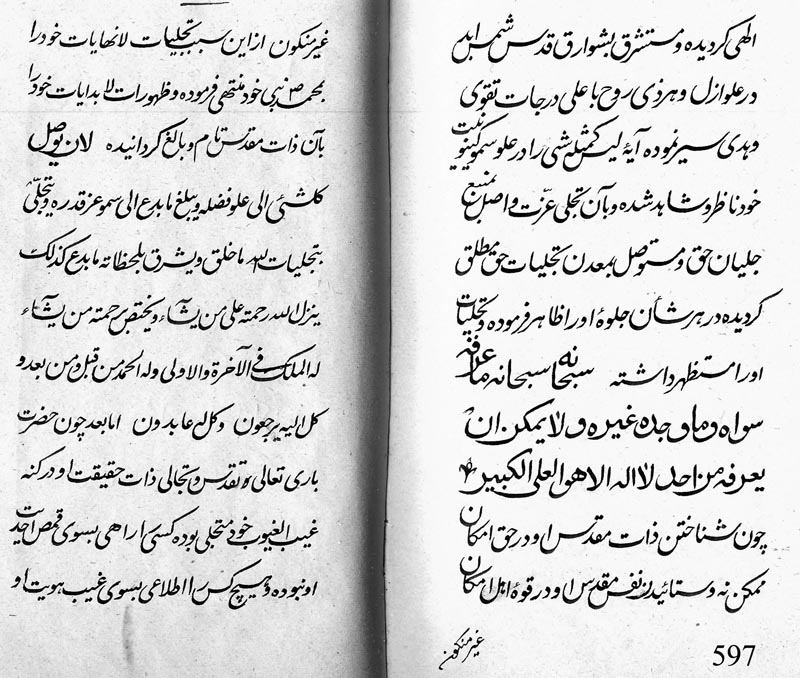 الهی کردیده و مستشرق بشوارق قدس شمس ابد
در علو ازل و هر ذی روح باعلی درجات تقوی
و هدی سیر نموده آیهٔ لیس کمثله شئ را در علو سمو کینونیت
خود ناظر و شاهد شده و بآن تجلی عزّت واصل بمنبع
جلیان حق و مستوصل بمعدن تجلیات حق مطلق
کردیده در هر شأن جلوهٔ او را ظاهر فرموده و تجلیات
او را مستظهر داشته سبحانه سبحانه ما عرفه
سواه و ما وجده غیره و لا یمکن ان
یعرفه من احد لا اله الا هو العلی الکبیر
چون شناختن ذات مقدس او در حق امکان
ممکن نه و ستائیدن نفس مقدس او در قوهٔ اهل امکان
غیر متکون
597
غیر متکون از این سبب تجلیات لا نهایات خود را
بمحمد ص نبی خود منتهی فرموده و ظهورات لا بدایات خود را
بآن ذات مقدس تام و بالغ کردانیده لان یوصل
کلشئ الی علو فضله و یبلغ ما بدع الی سمو عز قدره و یتجلّی
بتجلیات الله ما خلق و یشرق بلحظاته ما بدع کذلک
ینزل الله رحمته علی من یشآء و یختص برحمته من یشآء
له الملک فی الآخرة و الاولی و له الحمد من قبل و من بعد و
کل الیه یرجعون و کل له عابدون اما بعد چون حضرت
باری تعالی و تقدس و تجالی ذات حقیقت او در کنه
غیب الغیوب خود متجلی بوده کسی را راهی بسوی قمص احدیت
او نبوده و هیچ کس را اطلاعی بسوی غیب هویت او